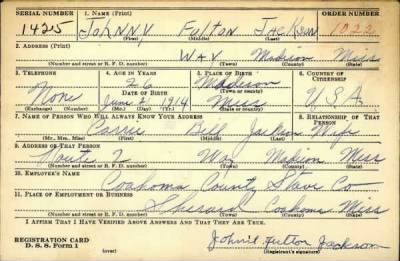 SERIAL NUMBER 1. NAME (Print) ORDER NUMBER
1425 JOHNNY FULTON JACKSON 1022
(First) (Middle) (Last)
2. ADDRESS (Print)
WAY Madison Miss
(Number and street or R. F. D. number) (Town) (County) (State)
3. TELEPHONE 4. AGE IN YEARS 5. PLACE OF BIRTH 6. COUNTRY OF CITIZENSHIP
None 26 Madison
DATE OF BIRTH (Town or county)
June 2, 1914 Miss U.S.A.
(Exchange) (Number) (Mo.) (Day) (Yr.) (State or country)
7. NAME OF PERSON WHO WILL ALWAYS KNOW YOUR ADDRESS 8. RELATIONSHIP OF THAT PERSON
Carrie Bell Jackson Wife
(Mr. Mrs. Miss) (First) (Middle) (Last)
9. ADDRESS OF THAT PERSON
Route 2 Way Madison Miss
(Number and street or R. F. D. number) (Town) (County) (State)
10. EMPLOYER'S NAME
Coahoma County Stave Co
11. PLACE OF EMPLOYMENT OR BUSINESS
Sherard Coahoma Miss
(Number and street or R. F. D. number) (Town) (County) (State)
I AFFIRM THAT I HAVE VERIFIED ABOVE ANSWERS AND THAT THEY ARE TRUE.
REGISTRATION CARD
D. S. S. Form 1 (over) Johnie Fulton Jackson
(Registrant's signature)